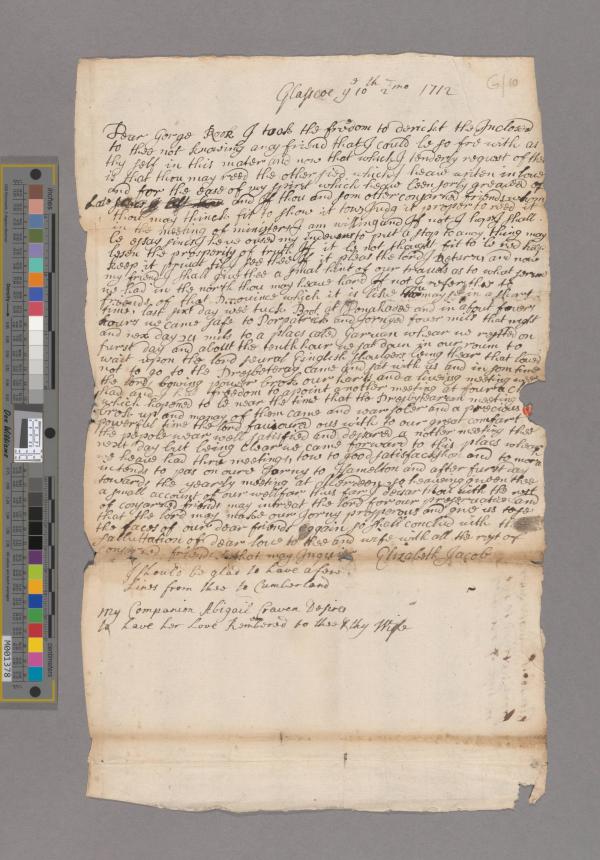 Glascoe ye 10th 2mo 1712
G/10
Dear Gorge Rook I took the freedom to derickt the Inclosed
to thee not knowing any friend that I could be so free with as
thy self in this mater and now that which I tenderly request of thee
is that thou may reed the other sied which I heave writen in love
and for the ease of my spirit which heave been sorly greaved of
Late and if thou and som other conserned friends whom
thou may thinck fit to show it to
in the meeting of ministers I am willing and if not I hope I shall
be easy sincs I heve owsed my indevers to put a stop to any thing may
lesen the prosperity of truth if it be not thought fit to be red
keep it privat till thee sees if it pleas the lord I Return and now
my friend I shall give thee a small hint of our travels as to what servis
we had in the north thou may heave hard if not I refer thee to
friends of that Province which it is like thou may see in a short
time last sixt day wee tuck Boat at Donchadee and in about fower
hours we came safe to Portpatrick and Jornyed fower mils that night
and nex day 24 mils to a place caled Garvan whear we rested on
furst day and about the tenth hour we sat doun in our roum to
wait upon the lord seural Inglish souldgers being thear that loved
not to go to the Presbeterians came and sat with us and in som time
the lord bowing power broke our harts and a liveing meeting we
had and had freedom to apoint another meeting at fower
which hapened to be near the time that the Presbyterean meeting
broke up and many of them came and wear sober and a precious
powerful time the lord favoured ous with to our great comfort
the pepole wear well satisfied and desiered a nother meeting the
next day but being clear we came forward to this place whear
we heave had three meetings tow to good satisfackshon and to morow
intends to pas on oure Jorny to Hamelton and after furst day
towards the yearly meeting at Aberdeen so heaveing given thee
a small account of our wellfar thus far I desier thou with the rest
of consarned friends may intreat the lord for our preservation and
that the lord may make our Jorny prosperous and give us to se
the faces of our dear friends again so shall conclud with the
sallutation of dear love to thee and wife with all the rest of
consarned friends that may Inquir Elizabeth Jacob
I should be glad to have a few
Lines from thee to Cumberland
My Companion Abigail Craven Desires
to have her Love Rembered to thee & thy Wife